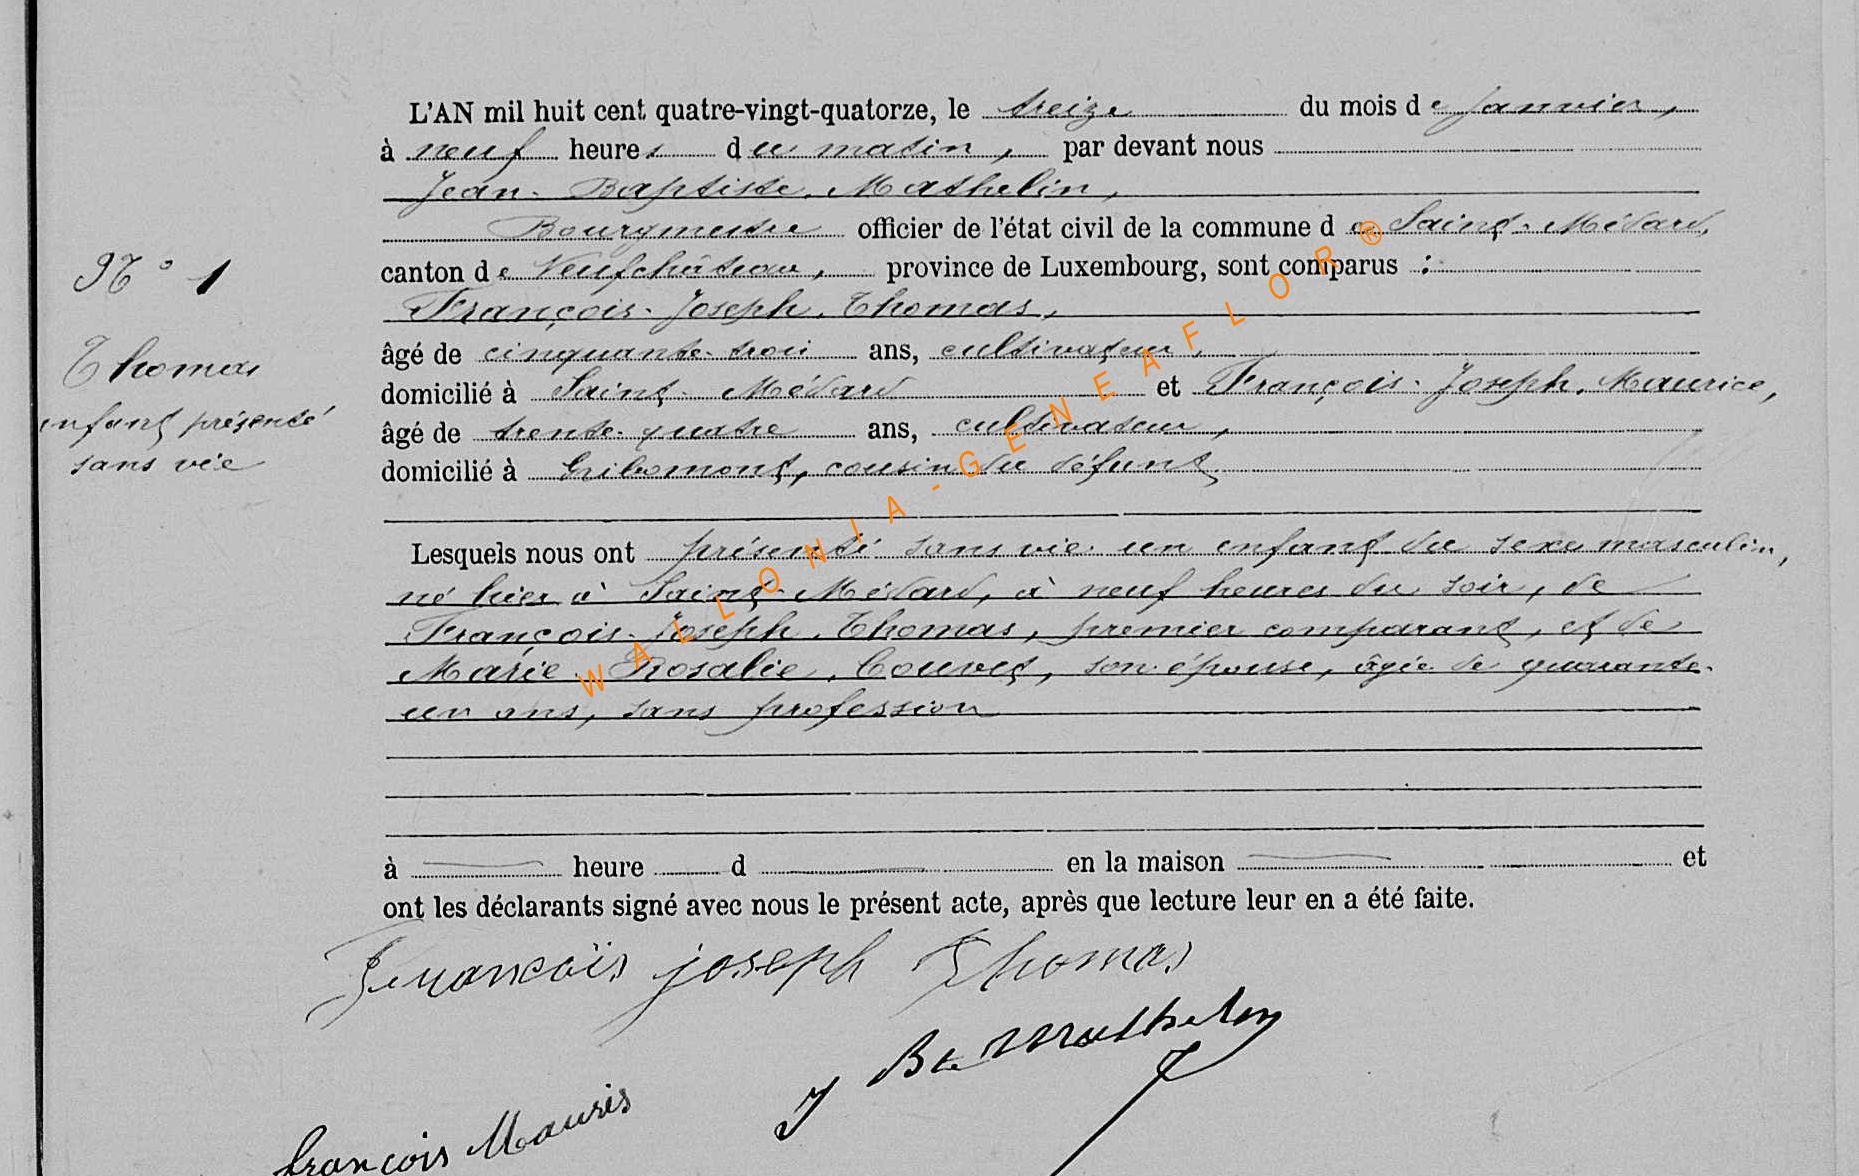 L'AN mil huit cent quatre-vingt-quatorze, le treize du mois de janvier,
à neuf heures du matin, par devant nous
Jean-Baptiste Mathelin,
Bourgmestre officier de l'état civil de la commune de Saint-Médard,
N° 1
canton de Neufchâteau, province de Luxembourg, sont comparus :
François-Joseph Thomas,
Thomas
âgé de cinquante-trois ans, cultivateur,
domicilié à Saint-Médard et François-Joseph Maurice,
enfant présenté
âgé de trente-quatre ans, cultivateur,
sans vie
domicilié à Gribomont, cousin du défunt
Lesquels nous ont présenté sans vie un enfant du sexe masculin,
né hier à Saint-Médard, à neuf heures du soir, de
François-Joseph Thomas, premier comparant, et de
Marie Rosalie Couvet, son épouse, âgée de quarante-
un ans, sans profession
à heure d en la maison et
ont les déclarants signé avec nous le présent acte, après que lecture leur en a été faite.
François joseph Thomas
J Bte Mathelin
françois Mauris
WALLONIA-GENEAFLOR®